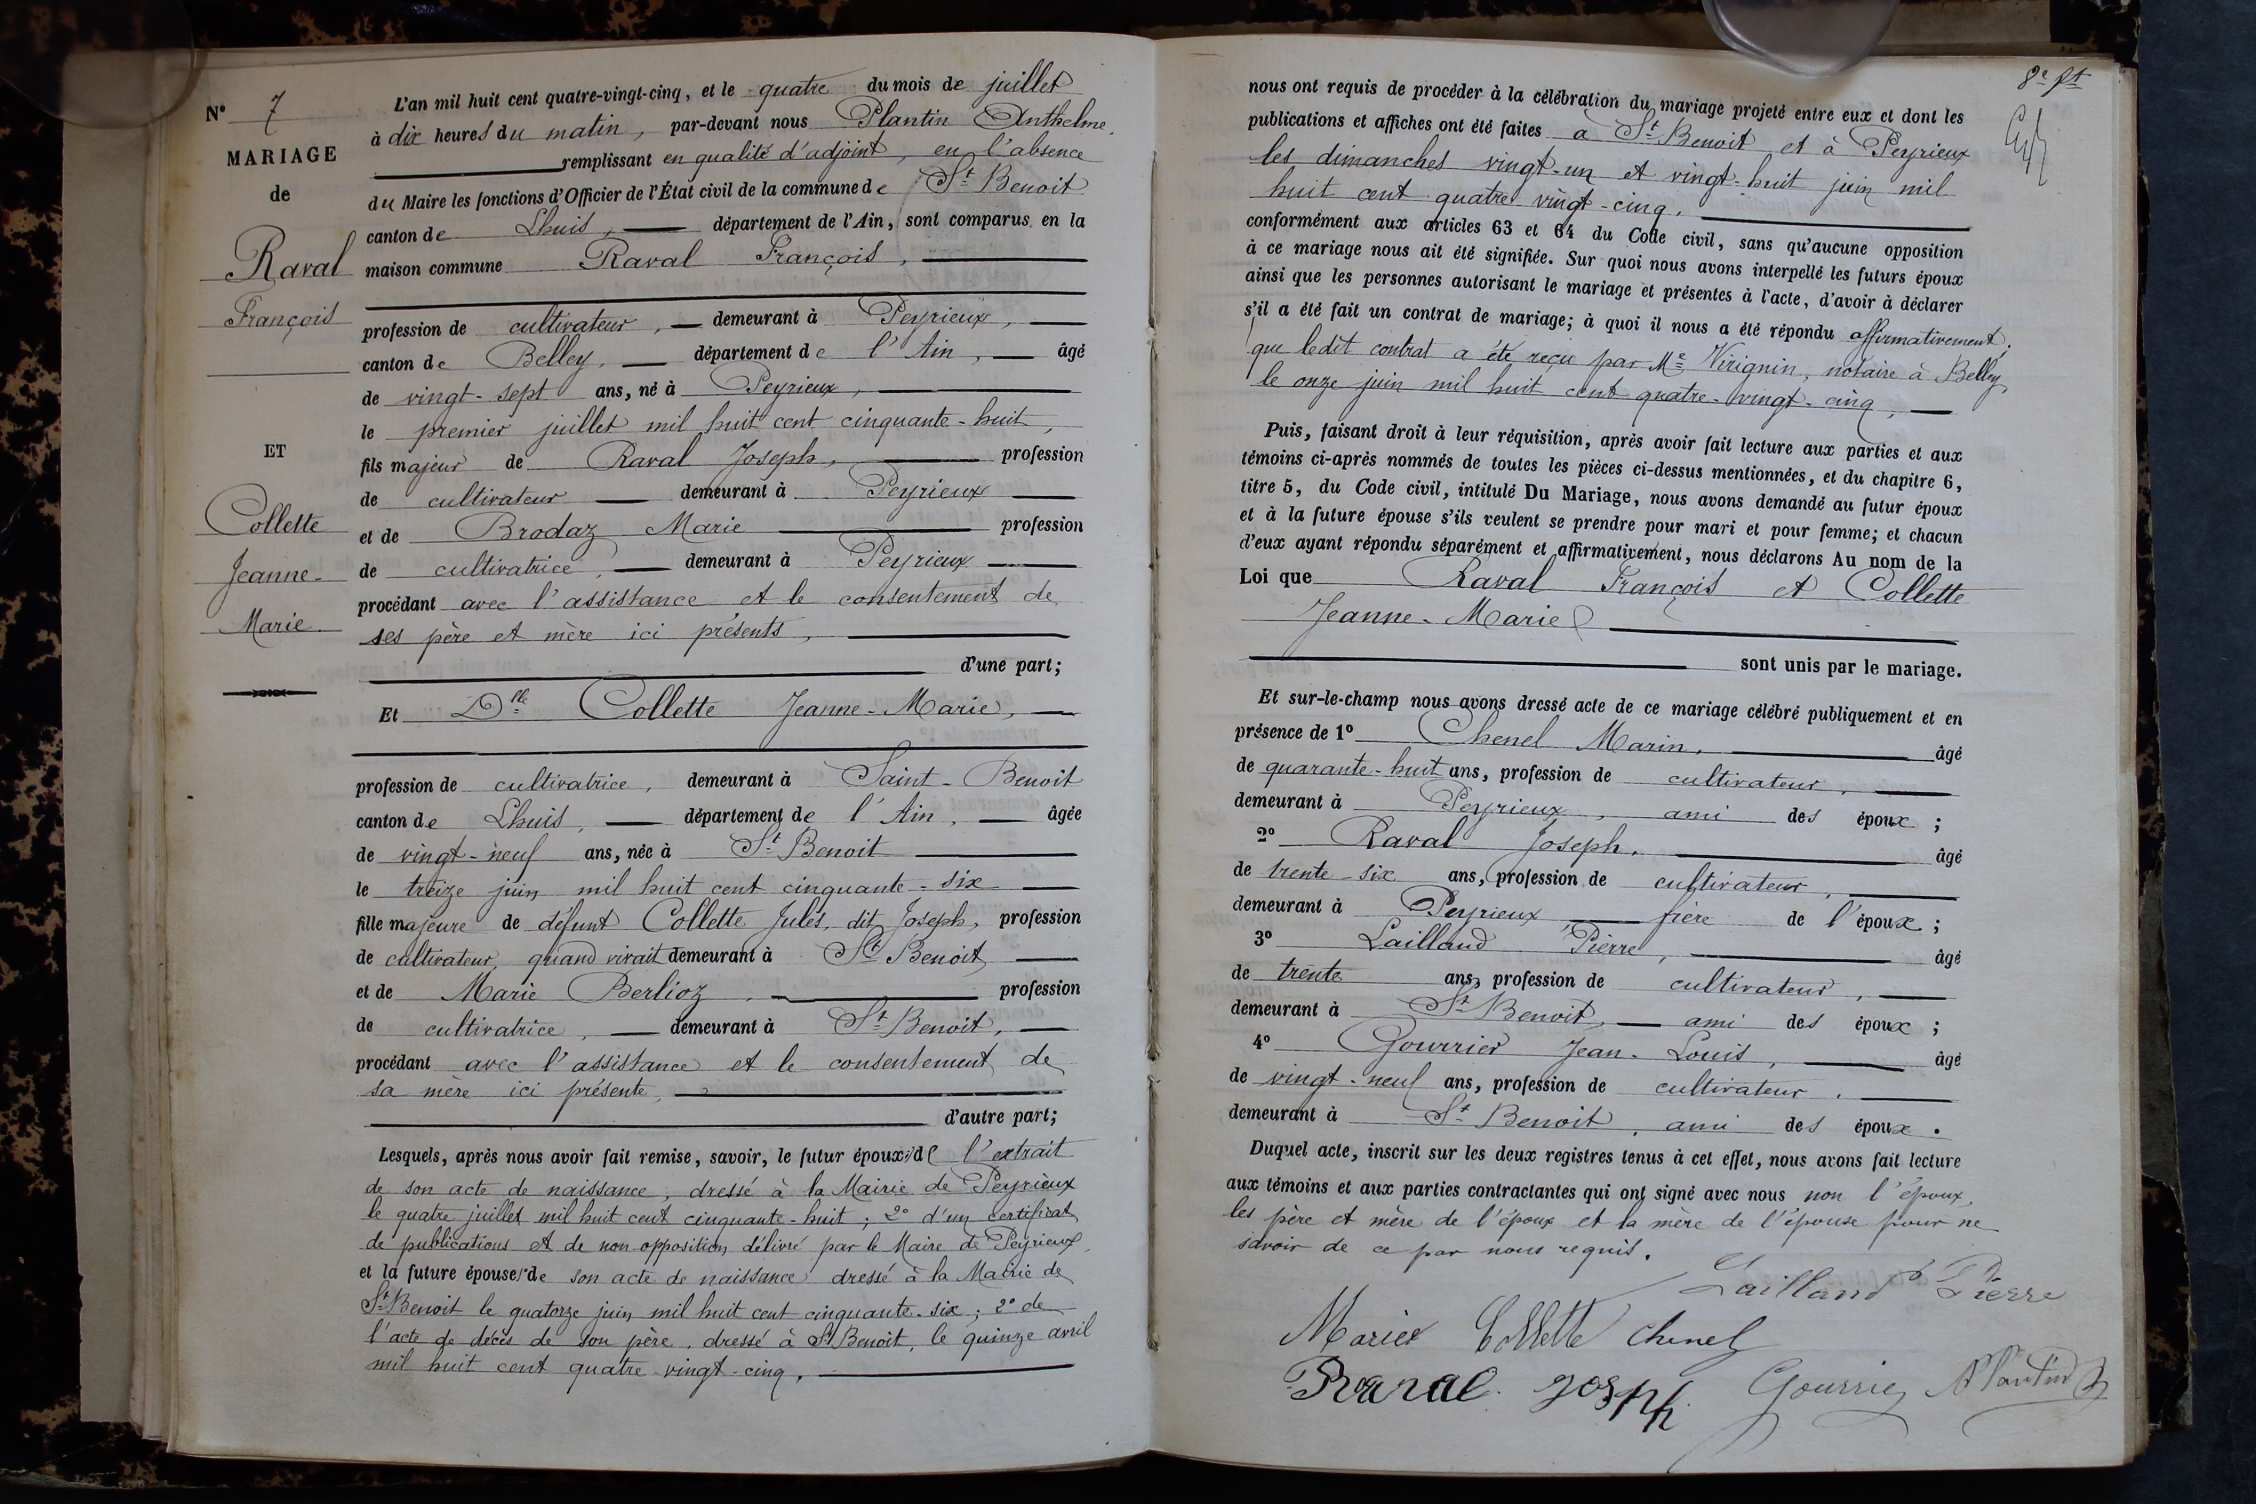 N° 7
MARIAGE
de
Raval
François
ET
Collette
Jeanne-
Marie
L'an mil huit cent quatre-vingt-cinq, et le quatre du mois de juillet
à dix heures du matin, par-devant nous Plantin Anthelme,
remplissant en qualité d'adjoint, en l'absence
du Maire les fonctions d'Officier de l'État civil de la commune de St Benoit
canton de Lhuis, département de l'Ain, sont comparus en la
maison commune Raval François,
profession de cultivateur, demeurant à Peyrieux,
canton de Belley, département de l'Ain, âgé
de vingt-sept ans, né à Peyrieux,
le premier juillet mil huit cent cinquante-huit,
fils majeur de Raval Joseph, profession
de cultivateur demeurant à Peyrieux
et de Brodaz Marie profession
de cultivatrice, demeurant à Peyrieux
procédant avec l'assistance et le consentement de
ses père et mère ici présents,
d'une part;
Et Dlle Collette Jeanne-Marie,
profession de cultivatrice, demeurant à Saint-Benoit
canton de Lhuis, département de l'Ain, âgée
de vingt-neuf ans, née à St Benoit
le treize juin mil huit cent cinquante-six
fille majeure de défunt Collette Jules, dit Joseph, profession
de cultivateur, quand vivait demeurant à St Benoit,
et de Marie Berlioz, profession
de cultivatrice, demeurant à St Benoit,
procédant avec l'assistance et le consentement de
sa mère ici présente,
d'autre part;
Lesquels, après nous avoir fait remise, savoir, le futur époux de l'extrait
de son acte de naissance, dressé à la Mairie de Peyrieux
le quatre juillet mil huit cent cinquante-huit; 2° d'un certificat
de publications et de non opposition délivré par le Maire de Peyrieux,
et la future épouse de son acte de naissance dressé à la Mairie de
St Benoit le quatorze juin mil huit cent cinquante-six; 2° de
l'acte de décès de son père, dressé à St Benoit, le quinze avril
mil huit cent quatre-vingt-cinq,
8e pt
nous ont requis de procéder à la célébration du mariage projeté entre eux et dont les
publications et affiches ont été faites à St Benoit et à Peyrieux
les dimanches vingt-un et vingt-huit juin mil
huit cent quatre-vingt-cinq,
conformément aux articles 63 et 64 du Code civil, sans qu'aucune opposition
à ce mariage nous ait été signifiée. Sur quoi nous avons interpellé les futurs époux
ainsi que les personnes autorisant le mariage et présentes à l'acte, d'avoir à déclarer
s'il a été fait un contrat de mariage; à quoi il nous a été répondu affirmativement;
que ledit contrat a été reçu par Me Virignin, notaire à Belley,
le onze juin mil huit cent quatre-vingt-cinq,
Puis, faisant droit à leur réquisition, après avoir fait lecture aux parties et aux
témoins ci-après nommés de toutes les pièces ci-dessus mentionnées, et du chapitre 6,
titre 5, du Code civil, intitulé Du Mariage, nous avons demandé au futur époux
et à la future épouse s'ils veulent se prendre pour mari et pour femme; et chacun
d'eux ayant répondu séparément et affirmativement, nous déclarons Au nom de la
Loi que Raval François et Collette
Jeanne-Marie
sont unis par le mariage.
Et sur-le-champ nous avons dressé acte de ce mariage célébré publiquement et en
présence de 1° Chenel Marin, âgé
de quarante-huit ans, profession de cultivateur,
demeurant à Peyrieux, ami des époux;
2° Raval Joseph, âgé
de trente-six ans, profession de cultivateur,
demeurant à Peyrieux frère de l'époux;
3° Lailland Pierre, âgé
de trente ans, profession de cultivateur,
demeurant à St Benoit, ami des époux;
4° Gourrier Jean-Louis, âgé
de vingt-neuf ans, profession de cultivateur,
demeurant à St Benoit, ami des époux.
Duquel acte, inscrit sur les deux registres tenus à cet effet, nous avons fait lecture
aux témoins et aux parties contractantes qui ont signé avec nous non l'époux,
les père et mère de l'époux et la mère de l'épouse pour ne
savoir de ce par nous requis.
Lailland Pierre
Mariee Collette Chenel
Raval joseph Gourrier Plantin